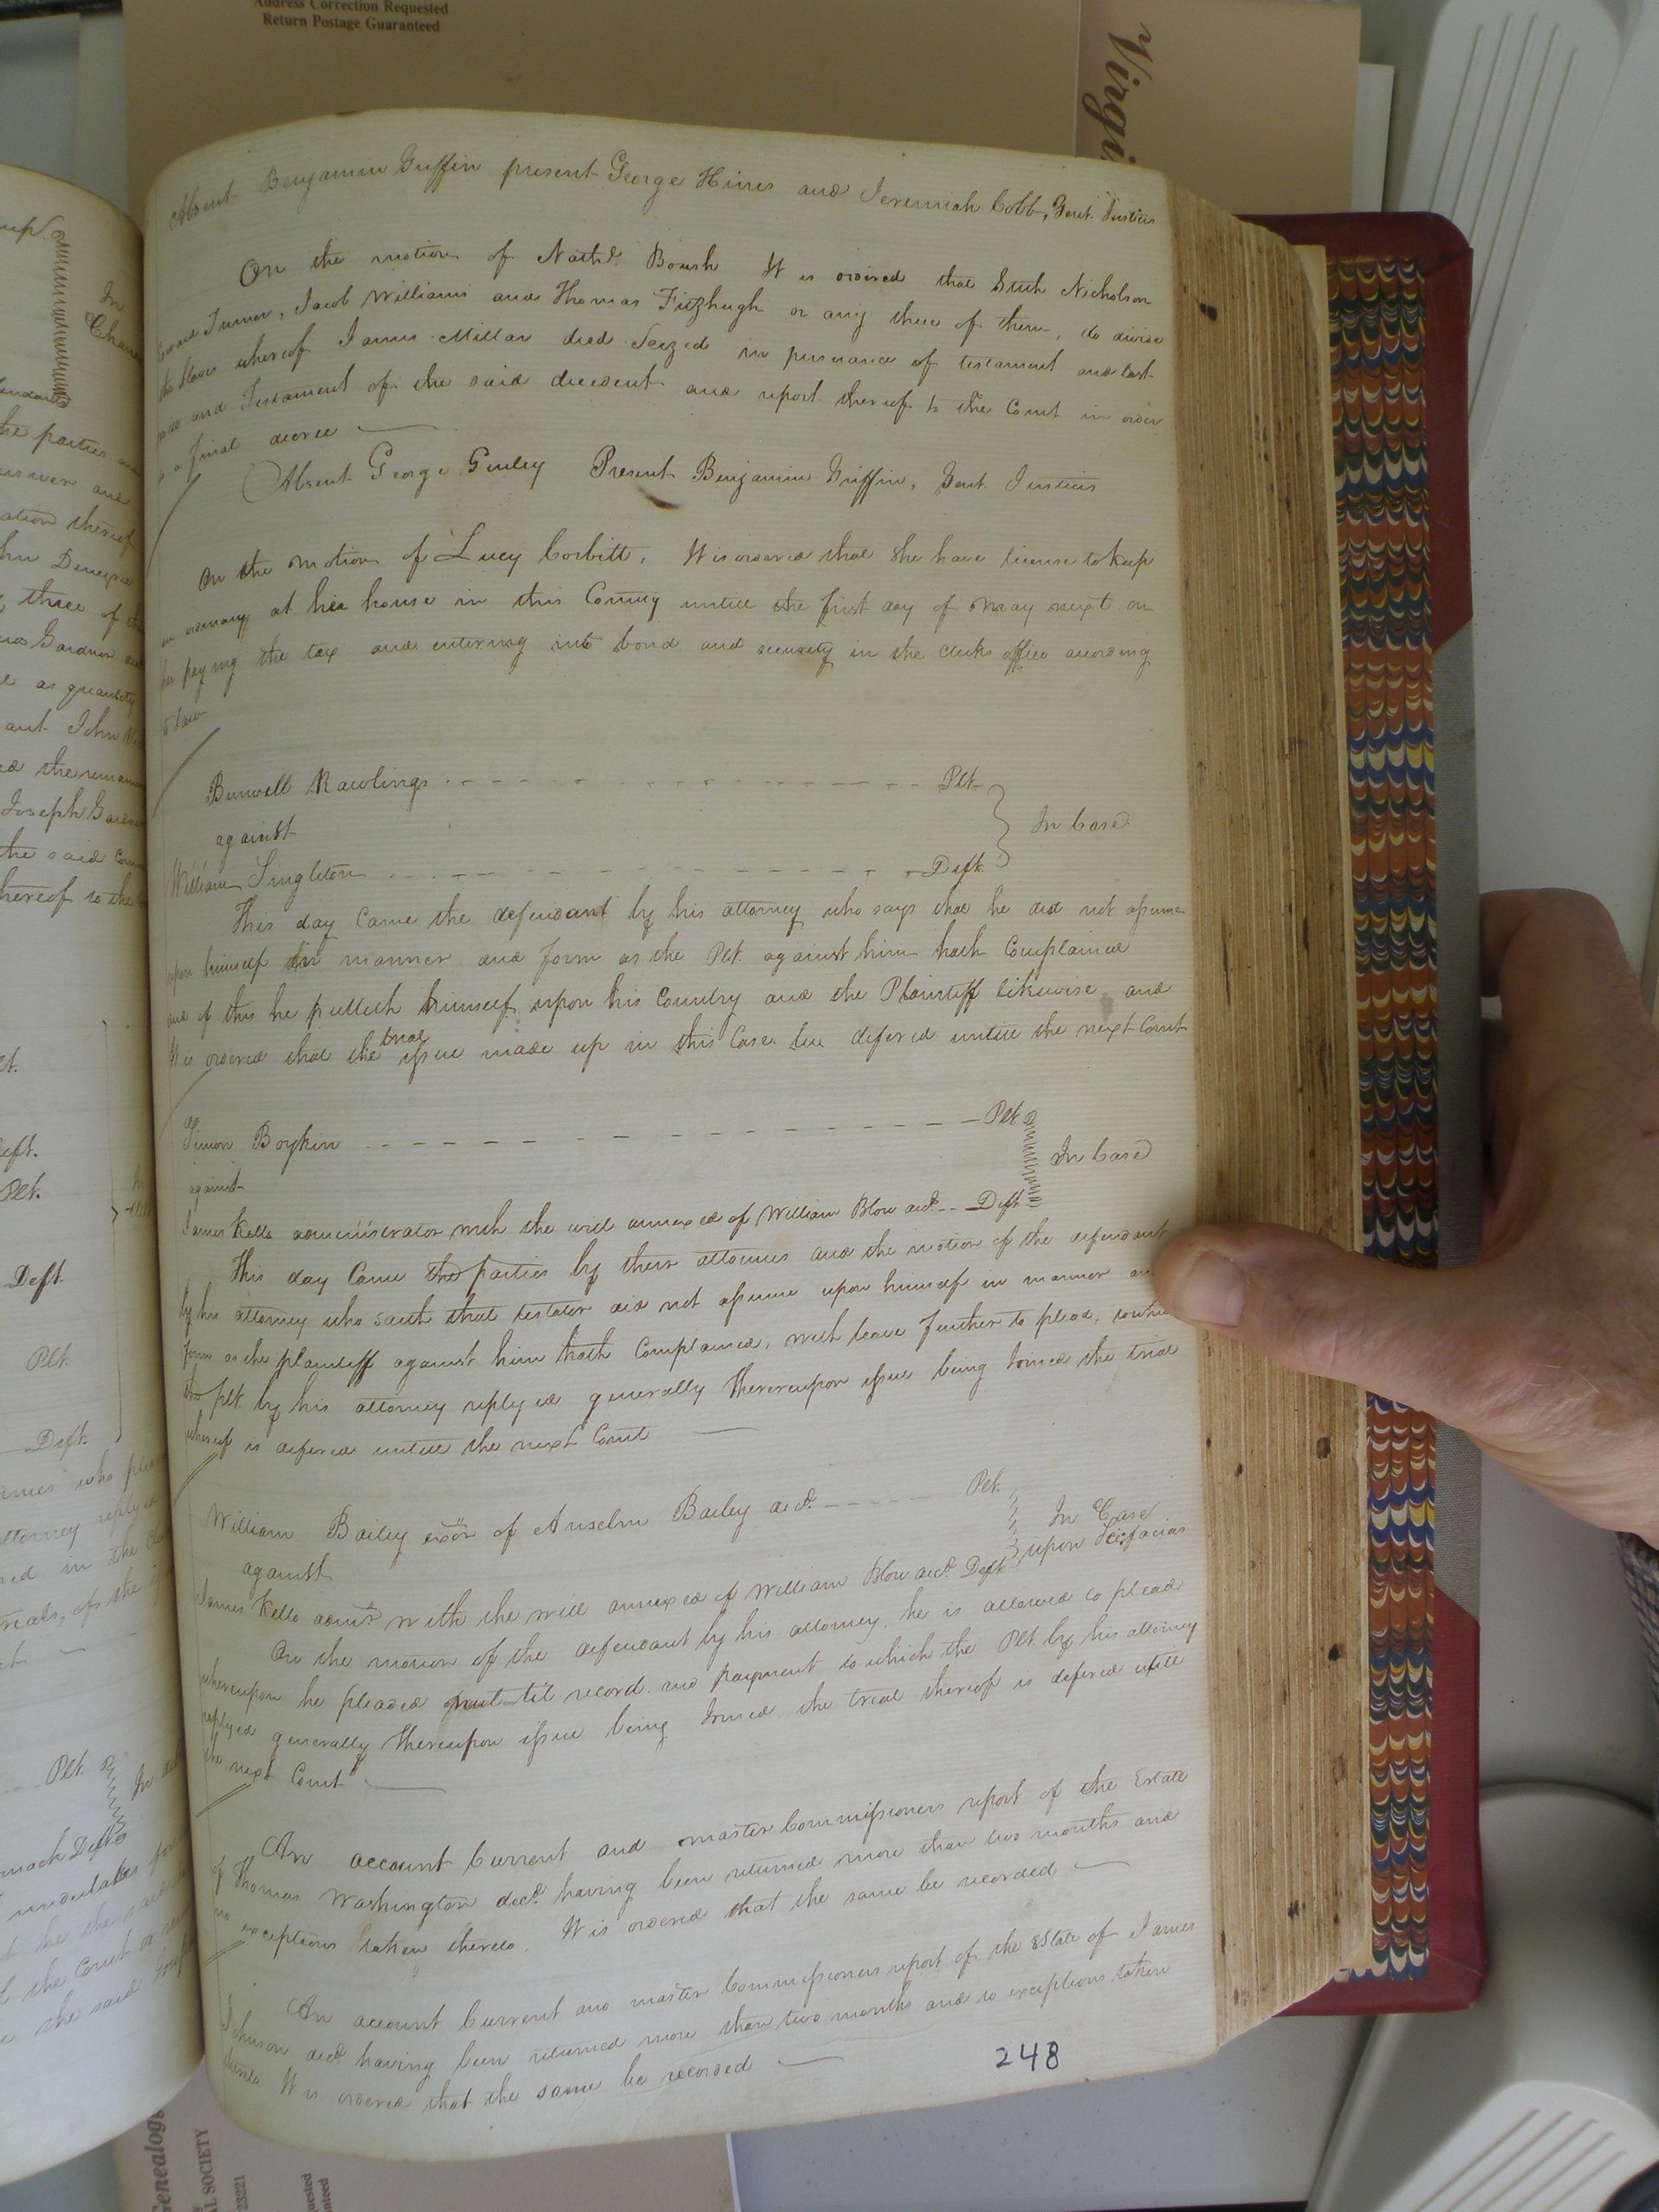 Address Correction Requested
Return Postage Guaranteed
Virgi
Absent Benjamin Griffin present George Hines and Jeremiah Cobb, Gent. Justices
On the motion of Nathl. Boush It is ordered that Nicholson
Turner, Jacob Williams and Thomas Fitzhugh or any three of them, do divide
the slaves whereof James Millar died Seized in pursuance of testament and last
and Testament of the said decedent and report thereof to the Court in order
a final decree
Absent George Gurley Present Benjamin Griffin, Gent. Justices
On the motion of Lucy Corbitt, It is ordered that she have license to keep
an ordinary at her house in this County untill the first day of May next on
her paying the tax and entering into bond and security in the clerks office according
to law
Burwell Rawlings Plt.
against
In Case
William Singleton Deft.
This day Came the defendant by his attorney who says that he did not assume
upon himself in manner and form as the Plt. against him hath Complained
and of this he putteth himself upon his Country and the Plaintiff likewise and
trial
It is ordered that the issue made up in this Case be defered untill the next Court
Simon Boykin Plt.
against
In Case
James Kello administrator with the will annexed of William Blow decd. Deft.
This day Came the parties by their attornies and the motion of the defendant
by his attorney who saith that testator did not assume upon himself in manner and
form as the plaintiff against him hath Complained, with leave further to plead,
the plt. by his attorney replyed generally thereupon issue being Joined the trial
whereof is defered untill the next Court
William Bailey exor. of Anselm Bailey decd. Plt.
against
In Case
upon Scifacias
James Kello admr. with the will annexed of William Blow decd. Deft.
On the motion of the defendant by his attorney he is allowed to plead
whereupon he pleaded nul til record and payment to which the Plt. by his attorney
replyed generally thereupon issue being Joined the trial thereof is defered utill
the next Court
An account Current and master Commissioners report of the Estate
of Thomas Washington decd. having been returned more than two months and
no exceptions taken thereto. It is ordered that the same be recorded
An account Current and master Commissioners report of the Estate of James
Johnson decd. having been returned more than two months and no exceptions taken
thereto It is ordered that the same be recorded
248
In
Chan
the parties
ation thereof
three of
Gardner
as quantity
ant John
Joseph Gard
the said
hereof to the
Plt.
Deft.
Plt.
Deft.
Plt.
Deft.
Plt.
In
Defts
Genealog
AL SOCIETY
23221